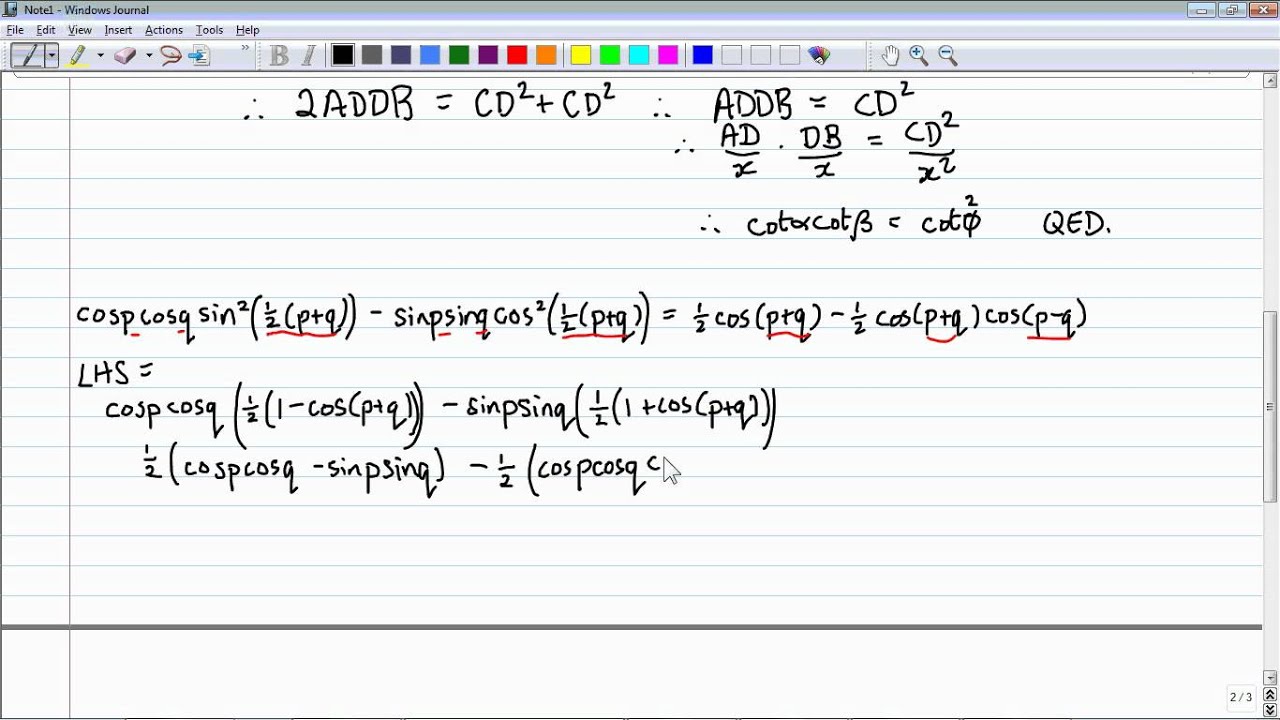 Note1 - Windows Journal
File Edit View Insert Actions Tools Help
» B I
∴ 2ADDB = CD²+CD² ∴ ADDB = CD²
∴ AD/x · DB/x = CD²/x²
∴ cotαcotβ = cot²φ QED.
cospcosqsin²(½(p+q)) - sinpsinqcos²(½(p+q)) = ½cos(p+q) - ½cos(p+q)cos(p-q)
LHS =
cospcosq(½(1-cos(p+q))) - sinpsinq(½(1+cos(p+q)))
½(cospcosq - sinpsinq) - ½(cospcosq c
2 / 3